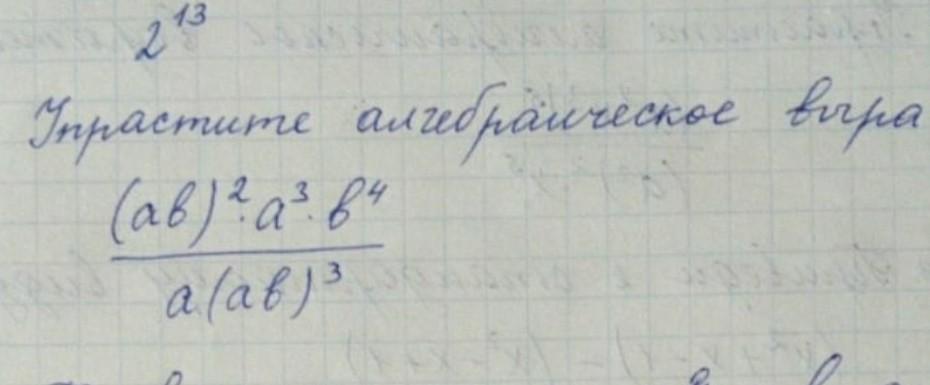 2^13
Упрастите алгебраическое выра
(ав)^2 · а^3 · в^4
а(ав)^3